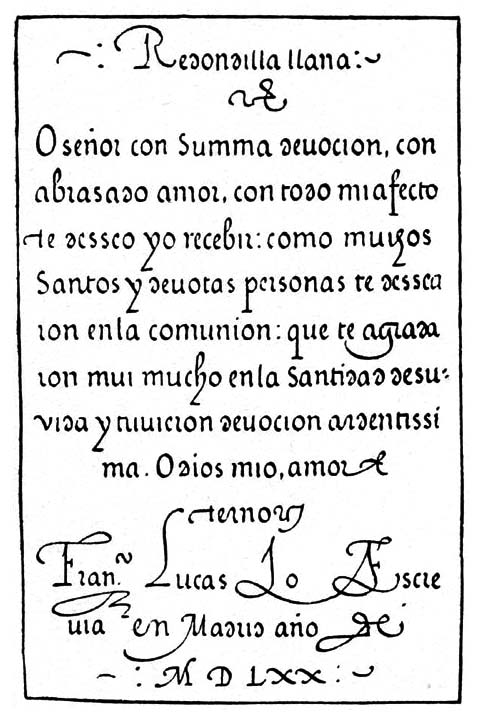 ~: Redondilla llana:~
O señor con Summa deuocion, con
abrasado amor, con todo mi afecto
te desseo yo recebir: como muchos
Santos y deuotas personas te dessea
ron enla comunion: que te agrada
ron mui mucho enla Santidad desu-
vida y tuuieron deuocion ardentissi
ma. O dios mio, amor e
terno
Fran.co Lucas Lo Escre
uia en Madrid año de
~: M D LXX :~